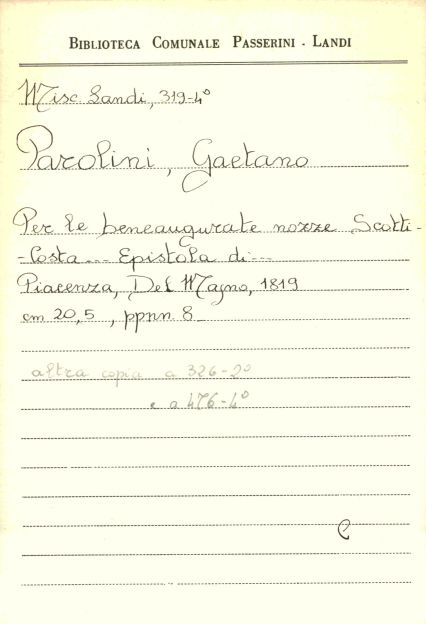 BIBLIOTECA COMUNALE PASSERINI - LANDI
Misc. Landi, 319-4º
Parolini, Gaetano
Per le beneaugurate nozze Scotti-
-Costa... Epistola di...
Piacenza, Del Magno, 1819
cm 20,5, ppnn 8
altra copia a 326-2º
e a 476-4º
C